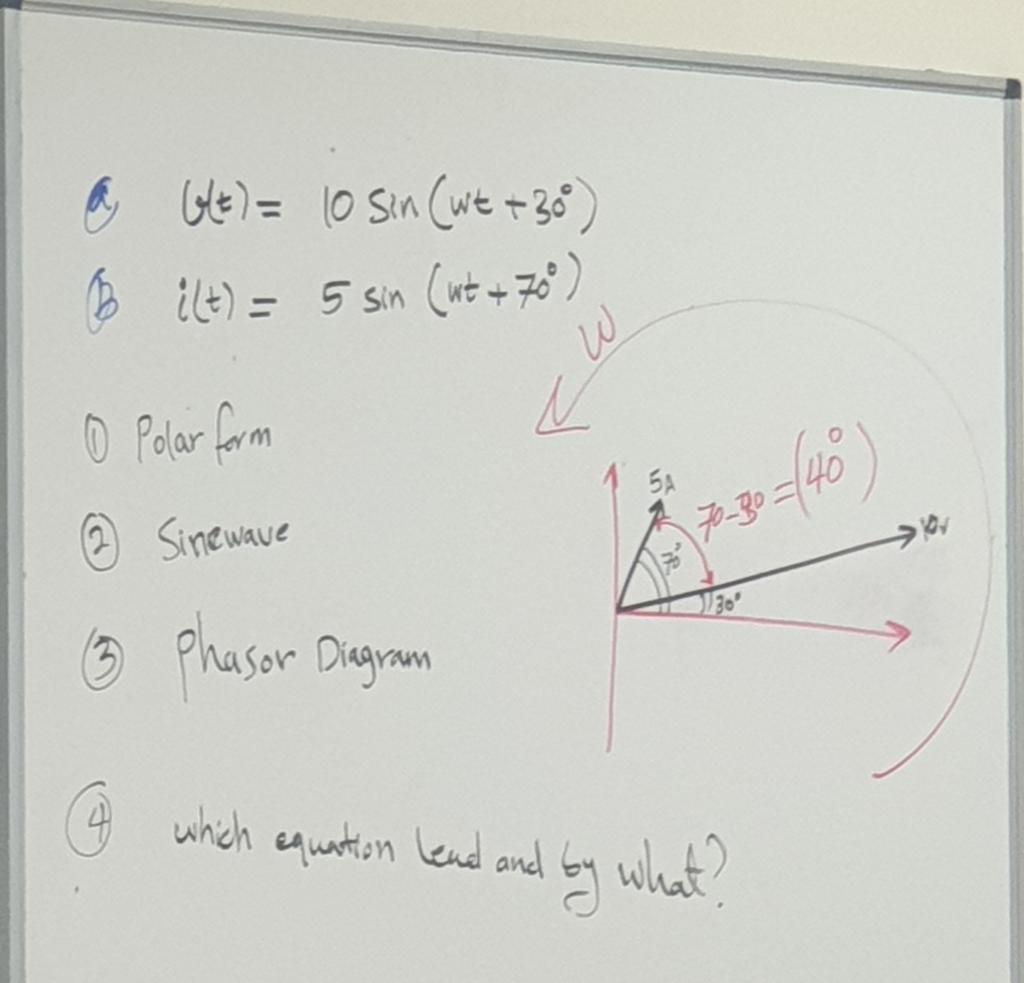 a v(t) = 10 sin (wt + 30°)
b i(t) = 5 sin (wt + 70°)
W
① Polar form
5A 70-30 = (40°)
② Sinewave
10v
70°
30°
③ Phasor Diagram
④ which equation lead and by what?